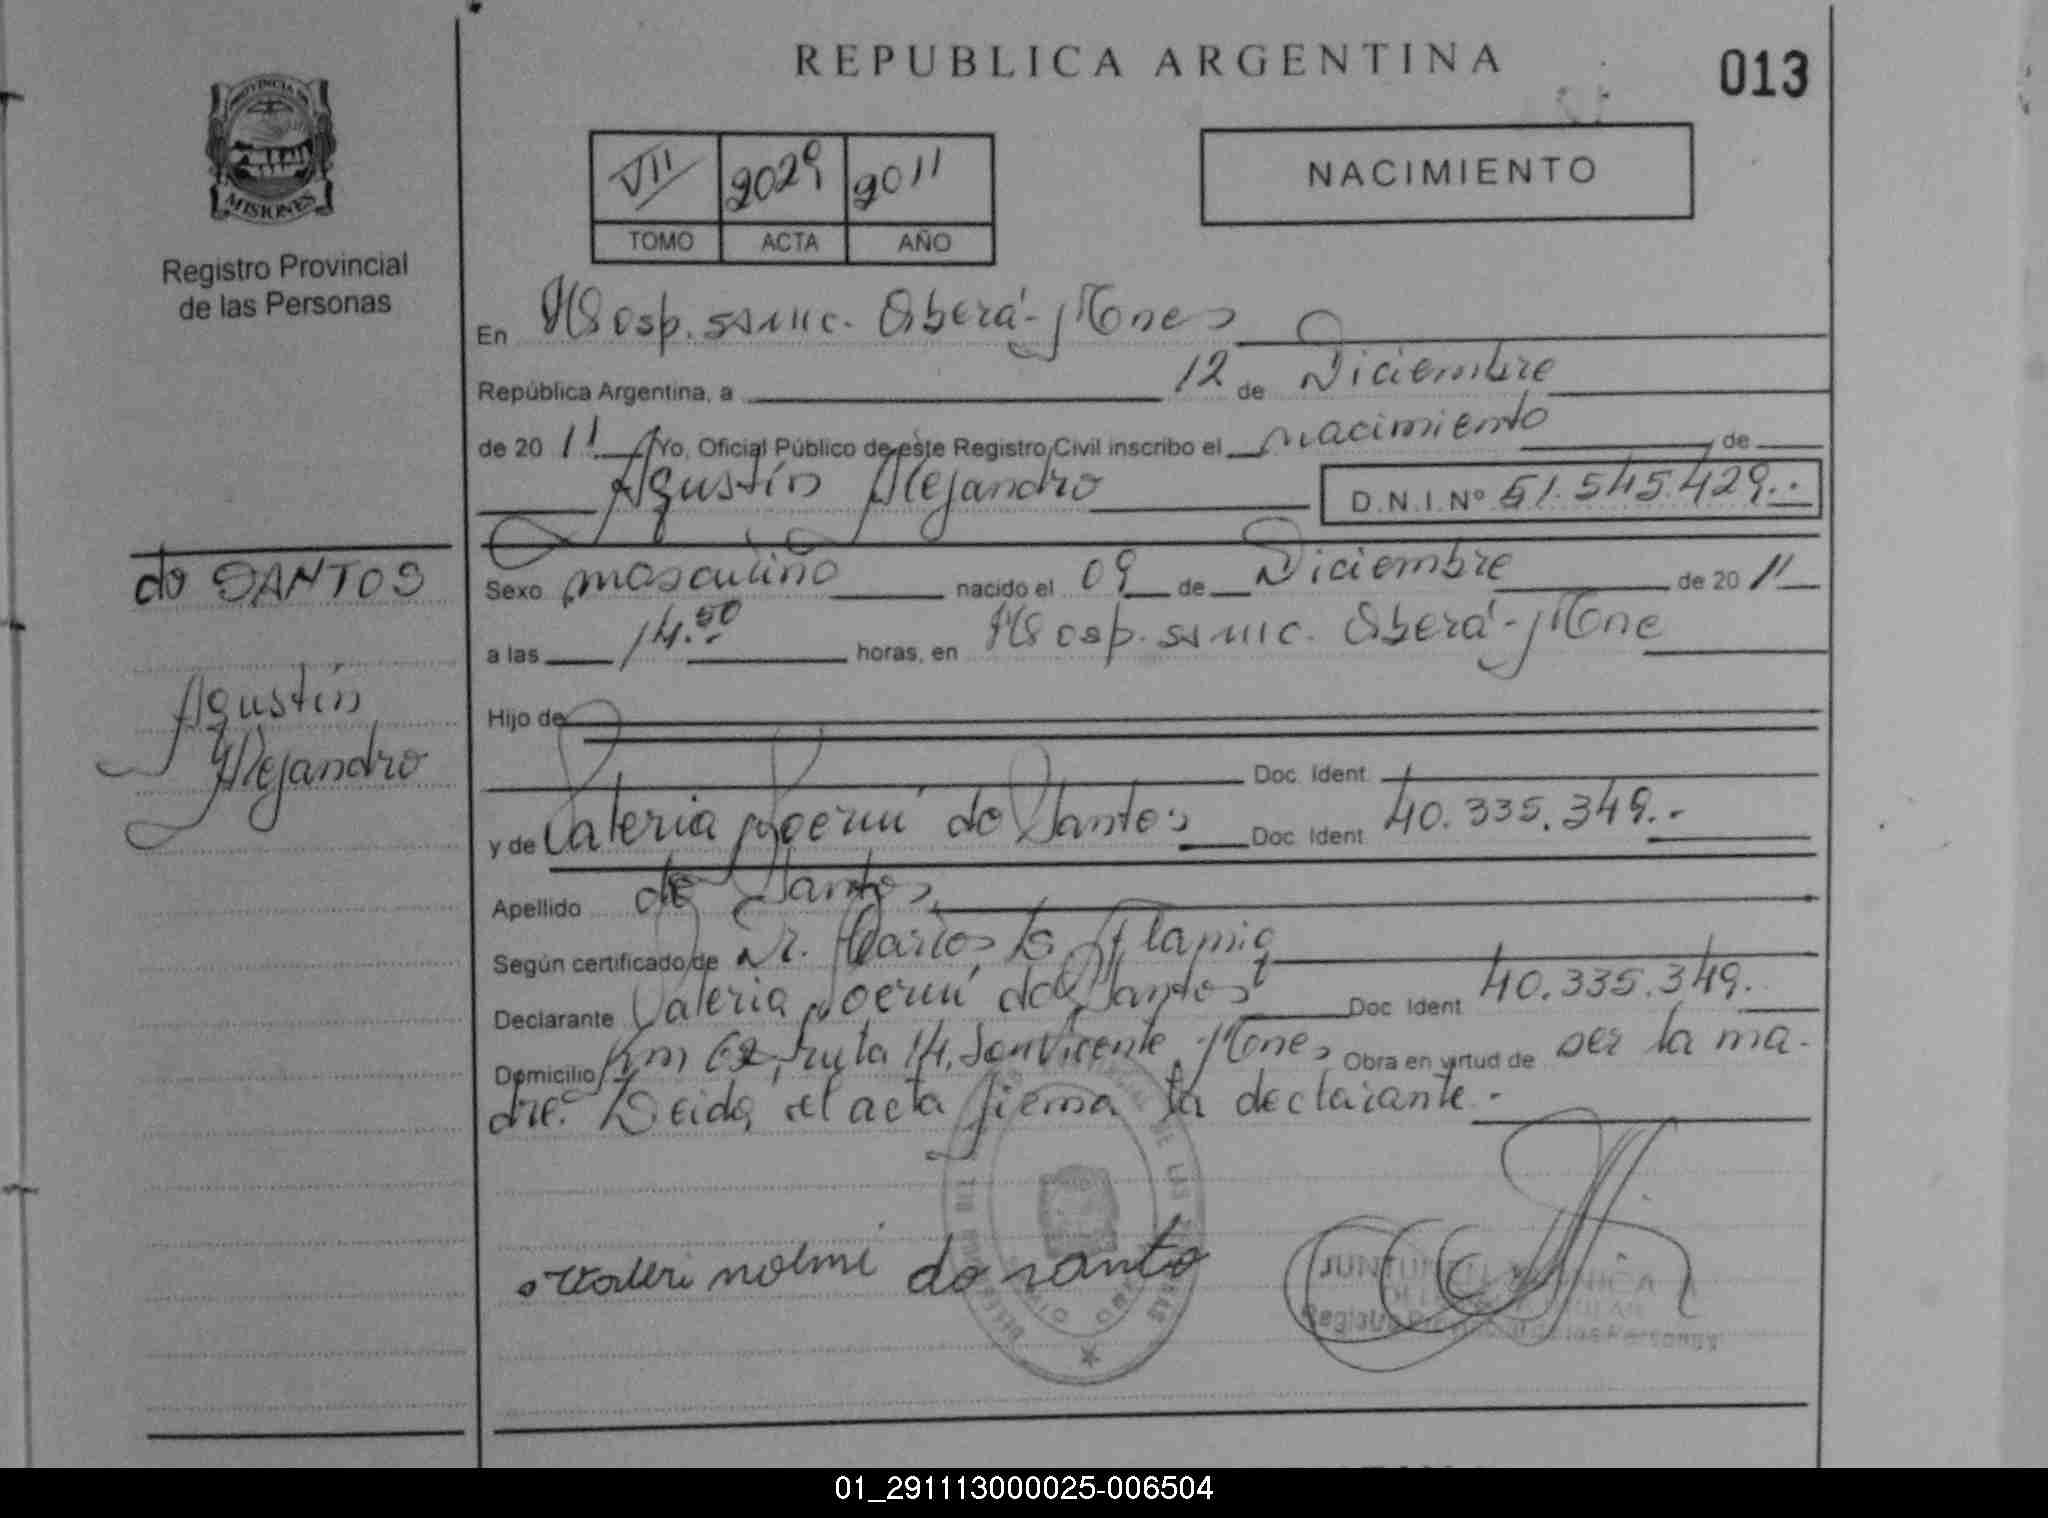 REPUBLICA ARGENTINA
013
PROVINCIA DE
MISIONES
Registro Provincial
de las Personas
VII 2029 2011
TOMO ACTA AÑO
NACIMIENTO
En Hosp. ssmic. Oberá - Mones
República Argentina, a 12 de Diciembre
de 20 11 Yo, Oficial Público de este Registro Civil inscribo el nacimiento de
Agustín Alejandro D.N.I.Nº 51.545.429.-
do SANTOS
Agustín
Alejandro
Sexo masculino nacido el 09 de Diciembre de 20 11
a las 14.50 horas, en Hosp. ssmic. Oberá - Mone
Hijo de
Doc. Ident.
y de Valeria Noemí do Santos Doc. Ident. 40.335.349.-
Apellido do Santos
Según certificado de Dr. Carlos
Declarante Valeria Noemí do Santos Doc. Ident. 40.335.349.
Domicilio Km 62, ruta 14, San Vicente, Mones Obra en virtud de ser la ma-
dre. Leida el acta firma la declarante.-
do santo
Registro Provincial de las Personas
01_291113000025-006504